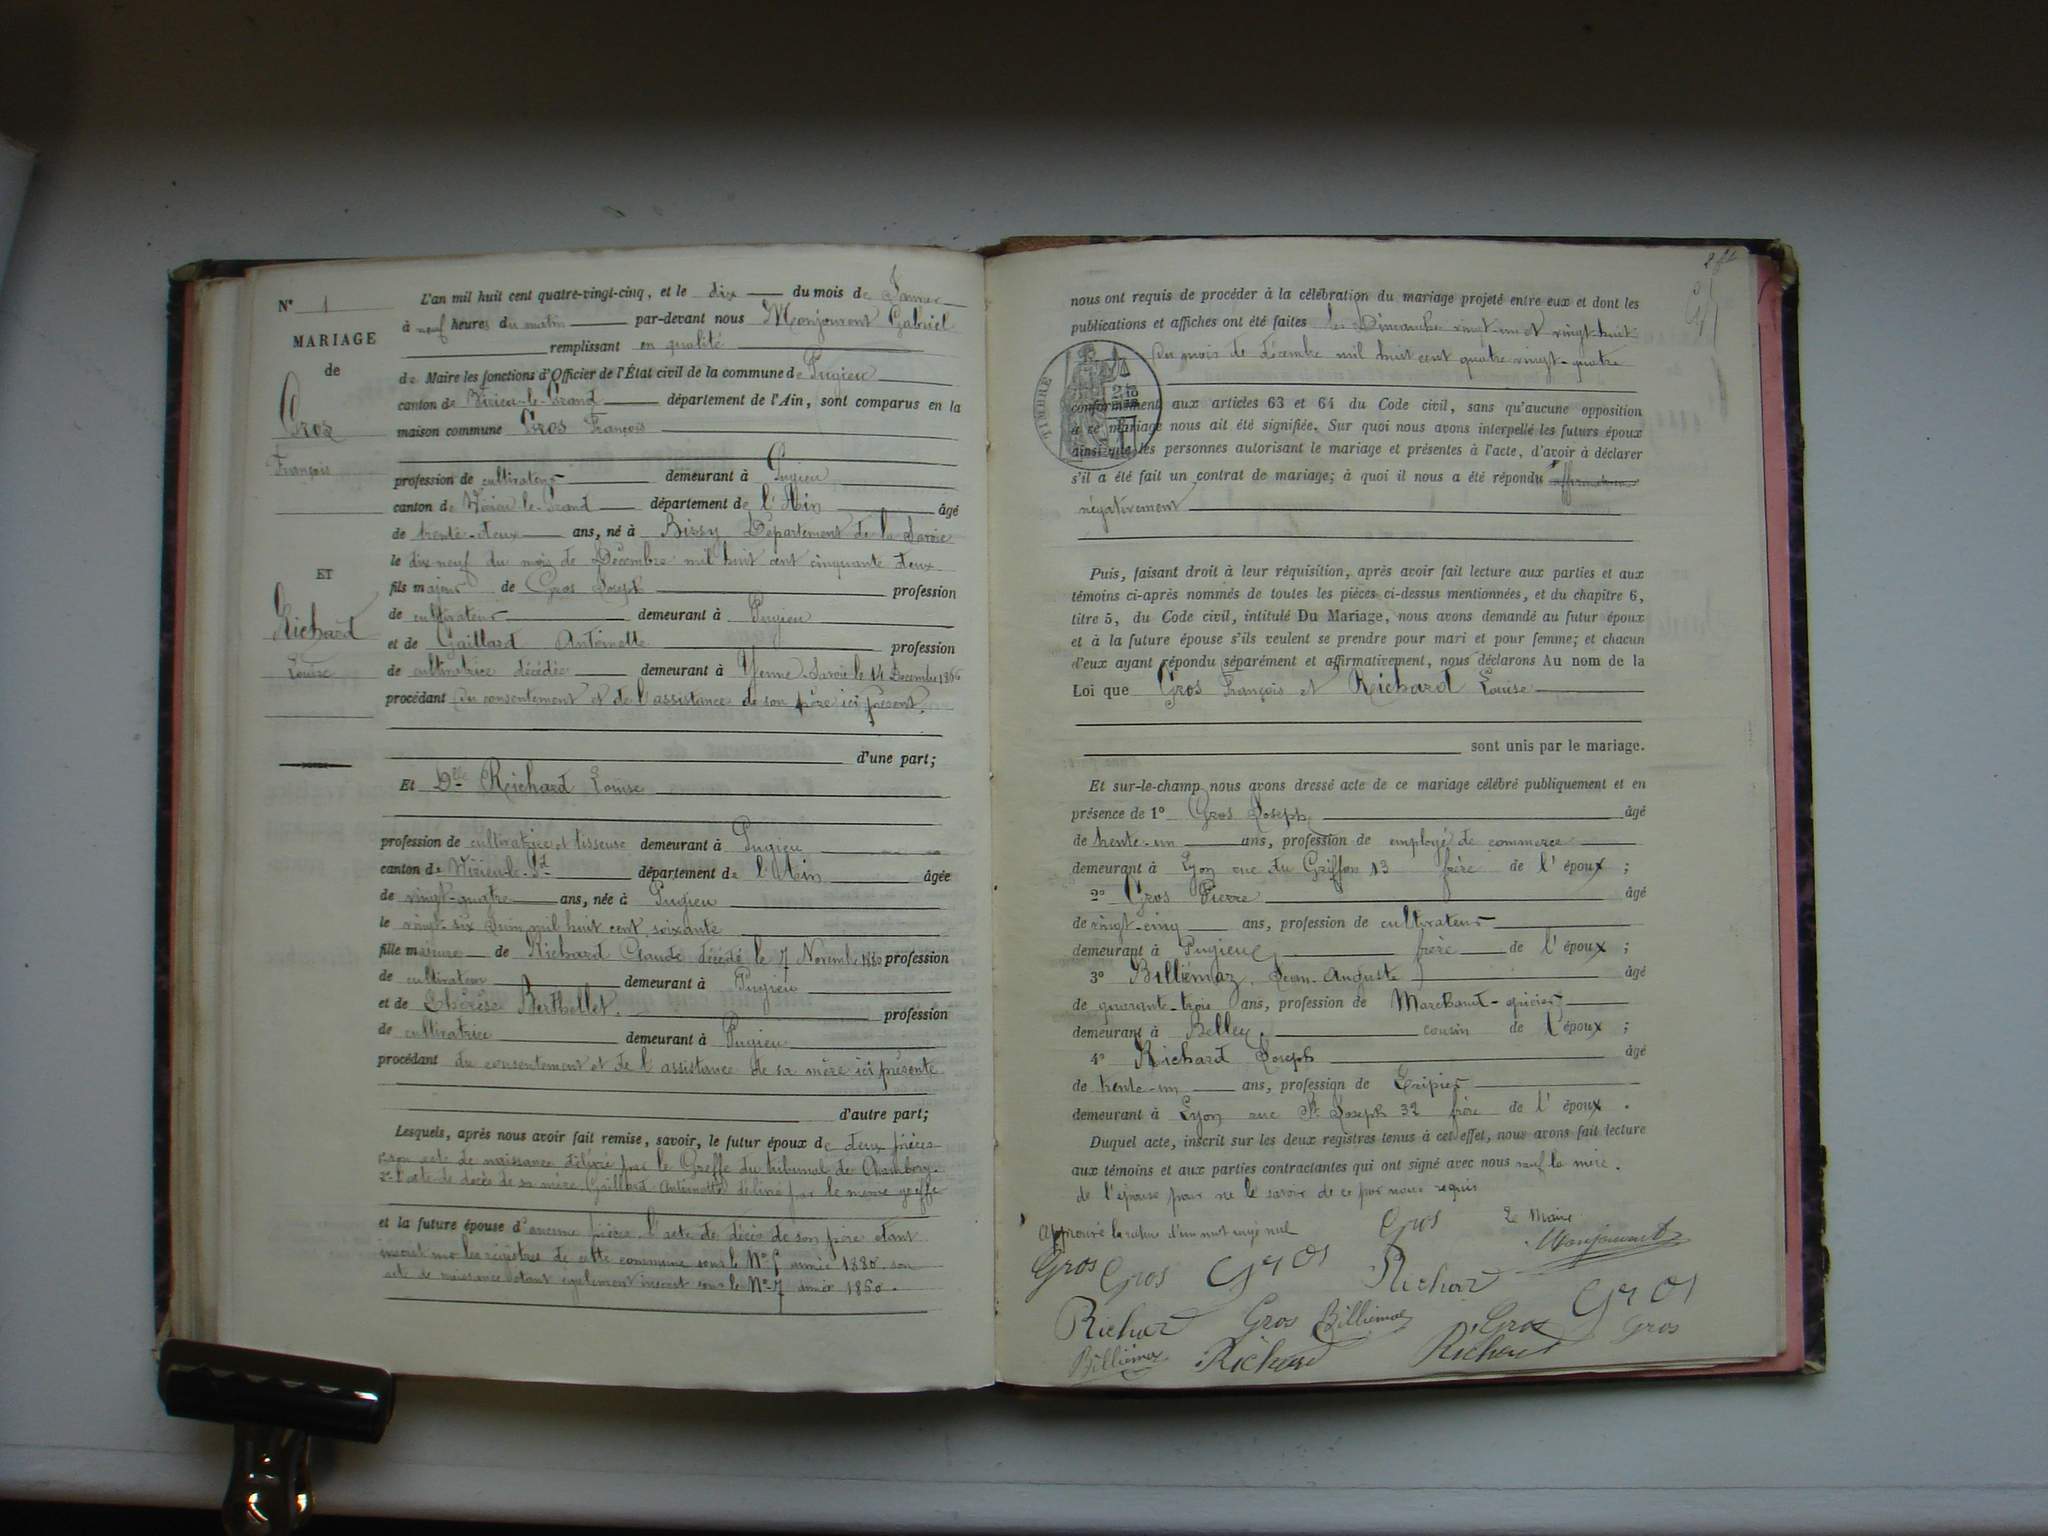 N° 1
MARIAGE
de
Gros
François
ET
Richard
Louise
L'an mil huit cent quatre-vingt-cinq, et le dix du mois de Janvier
à neuf heures du matin par-devant nous Monjouvent Gabriel
remplissant en qualité
de Maire les fonctions d'Officier de l'État civil de la commune de Pugieu
canton de Virieu-le-Grand département de l'Ain, sont comparus en la
maison commune Gros François
profession de cultivateur demeurant à Pugieu
canton de Virieu-le-Grand département de l'Ain âgé
de trente-deux ans, né à Bissy Département de la Savoie
le dix neuf du mois de Décembre mil huit cent cinquante deux
fils majeur de Gros Joseph profession
de cultivateur demeurant à Pugieu
et de Gaillard Antoinette profession
de cultivatrice décédée demeurant à Yenne Savoie le 14 Decembre
procédant du consentement et de l'assistance de son père ici présent.
d'une part;
Et Dlle Richard Louise
profession de cultivatrice et tisseuse demeurant à Pugieu
canton de Virieu-le-Gd département de l'Ain âgée
de vingt-quatre ans, née à Pugieu
le vingt-six Juin mil huit cent soixante
fille majeure de Richard Claude décédé le 7 Novembre 1880 profession
de cultivateur demeurant à Pugieu
et de Thérèse Berthellet. profession
de cultivatrice demeurant à Pugieu
procédant du consentement et de l'assistance de sa mère ici présente
d'autre part;
Lesquels, après nous avoir fait remise, savoir, le futur époux de deux pièces
1° son acte de naissance délivré par le Greffe du tribunal de Chambéry.
2° l'acte de décès de sa mère Gaillard Antoinette délivré par le même greffe
et la future épouse d'aucune pièce, l'acte de décès de son père étant
inscrit sur les registres de cette commune sous le N° année 1880. son
acte de naissance étant également inscrit sous le N° 7 année 1860.
nous ont requis de procéder à la célébration du mariage projeté entre eux et dont les
publications et affiches ont été faites les Dimanches vingt-un et vingt-huit
du mois de décembre mil huit cent quatre vingt-quatre
TIMBRE
conformément aux articles 63 et 64 du Code civil, sans qu'aucune opposition
à ce mariage nous ait été signifiée. Sur quoi nous avons interpellé les futurs époux
ainsi que les personnes autorisant le mariage et présentes à l'acte, d'avoir à déclarer
s'il a été fait un contrat de mariage; à quoi il nous a été répondu
négativement
Puis, faisant droit à leur réquisition, après avoir fait lecture aux parties et aux
témoins ci-après nommés de toutes les pièces ci-dessus mentionnées, et du chapitre 6,
titre 5, du Code civil, intitulé Du Mariage, nous avons demandé au futur époux
et à la future épouse s'ils veulent se prendre pour mari et pour femme; et chacun
d'eux ayant répondu séparément et affirmativement, nous déclarons Au nom de la
Loi que Gros François et Richard Louise
sont unis par le mariage.
Et sur-le-champ nous avons dressé acte de ce mariage célébré publiquement et en
présence de 1° Gros Joseph âgé
de trente-un ans, profession de employé de commerce
demeurant à Lyon rue du Griffon 13 frère de l'époux ;
2° Gros Pierre âgé
de vingt-cinq ans, profession de cultivateur
demeurant à Pugieu frère de l'époux ;
3° Billiémaz Jean-Auguste âgé
de quarante-trois ans, profession de Marchand-épicier
demeurant à Belley cousin de l'époux ;
4° Richard Joseph âgé
de trente-un ans, profession de Tripier
demeurant à Lyon rue St Joseph 32 frère de l'époux .
Duquel acte, inscrit sur les deux registres tenus à cet effet, nous avons fait lecture
aux témoins et aux parties contractantes qui ont signé avec nous sauf la mère.
de l'épouse pour ne le savoir de ce par nous requis
Approuvé la rature d'un mot rayé nul Gros Le Maire
Monjouvent
Gros Gros Gros Richard
Richard Gros Billiémaz Gros Gros Gros
Billiémaz Richard Richard